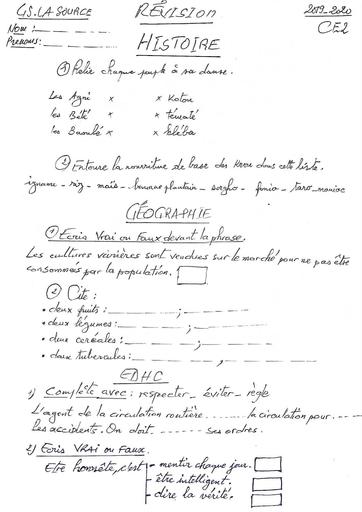 GS. LA SOURCE RÉVISION 2019-2020
Nom : CE2
Prénoms :
HISTOIRE
① Relie chaque peuple à sa danse.
Les Agni x x Kotou
les Bété x x Tématé
les Baoulé x x Kléba
② Entoure la nourriture de base des Krou dans cette liste.
igname - riz - maïs - banane plantain - sorgho - fonio - taro - manioc
GÉOGRAPHIE
① Ecris Vrai ou Faux devant la phrase.
Les cultures vivrières sont vendues sur le marché pour ne pas être
consommées par la population.
② Cite :
• deux fruits : ;
• deux légumes : ;
• deux céréales : ;
• deux tubercules : ;
EDHC
1) Complète avec : respecter - éviter - règle
L'agent de la circulation routière ....... la circulation pour ......
les accidents. On doit ....... ses ordres.
2) Ecris VRAI ou Faux.
Etre honnête, c'est - mentir chaque jour.
- être intelligent.
- dire la vérité.